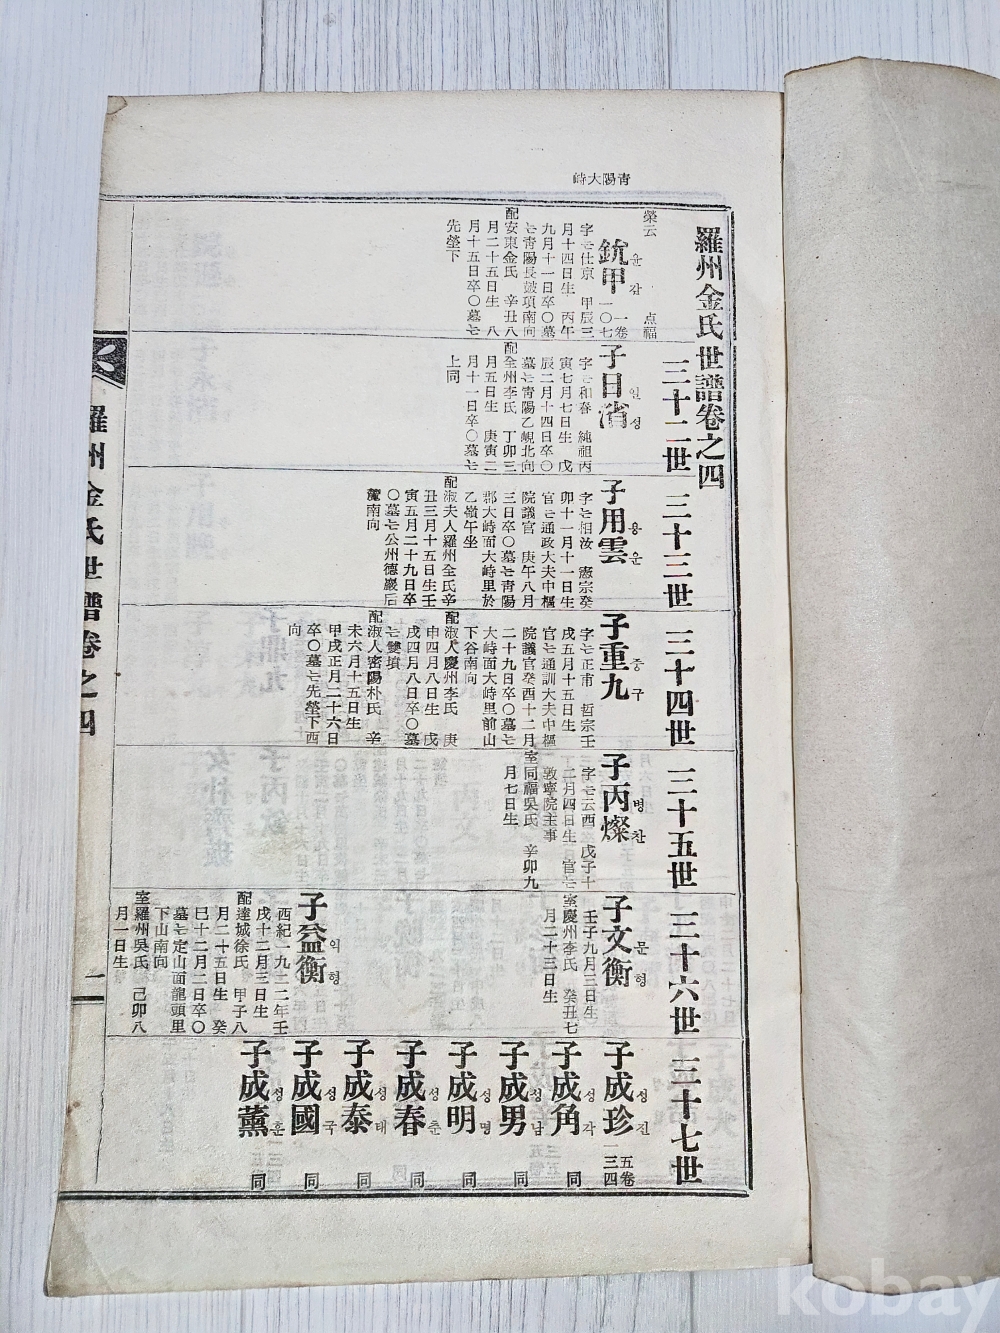 靑陽大峙
羅州金氏世譜卷之四
榮云 点福
銃甲 윤갑 一卷一〇七
字는仕京 甲辰三
月十四日生 丙午
九月十一日卒〇墓
는靑陽長皷項南向
配安東金氏 辛丑八
月二十五日生 八
月十五日卒〇墓는
先塋下
三十二世
子日渻 일성
字는和春 純祖丙
寅七月七日生 戊
辰二月十四日卒〇
墓는靑陽乙峴北向
配全州李氏 丁卯三
月五日生 庚寅二
月十一日卒〇墓는
上同
三十三世
子用雲 용운
字는相汝 憲宗癸
卯十一月十一日生
官은通政大夫中樞
院議官 庚午八月
三日卒〇墓는靑陽
郡大峙面大峙里於
乙嶺午坐
配淑夫人羅州全氏辛
丑三月十五日生壬
寅五月二十九日卒
〇墓는公州德巖后
麓南向
三十四世
子重九 중구
字는正甫 哲宗壬
戌五月十五日生
官은通訓大夫中樞
院議官癸酉十二月
二十九日卒〇墓는
大峙面大峙里前山
下谷南向
配淑人慶州李氏 庚
申四月八日生 戊
戌四月八日卒〇墓
는雙墳
配淑人密陽朴氏 辛
未六月十五日生
甲戌正月二十六日
卒〇墓는先塋下酉
向
三十五世
子丙燦 병찬
字는云酉 戊子十
二月四日生 官은
敦寧院主事
室同福吳氏 辛卯九
月七日生
三十六世
子文衡 문형
壬子九月三日生
室慶州李氏 癸丑七
月二十三日生
子益衡 익형
西紀一九二二年壬
戌十二月三日生
配達城徐氏 甲子八
月二十五日生 癸
巳十二月二日卒〇
墓는定山面龍頭里
下山南向
室羅州吳氏 己卯八
月一日生
三十七世
子成珍 성진 五卷一三四
子成角 성각 同
子成男 성남 同
子成明 성명 同
子成春 성춘 同
子成泰 성태 同
子成國 성국 同
子成薰 성훈 同
羅州金氏世譜卷之四
二
kobay